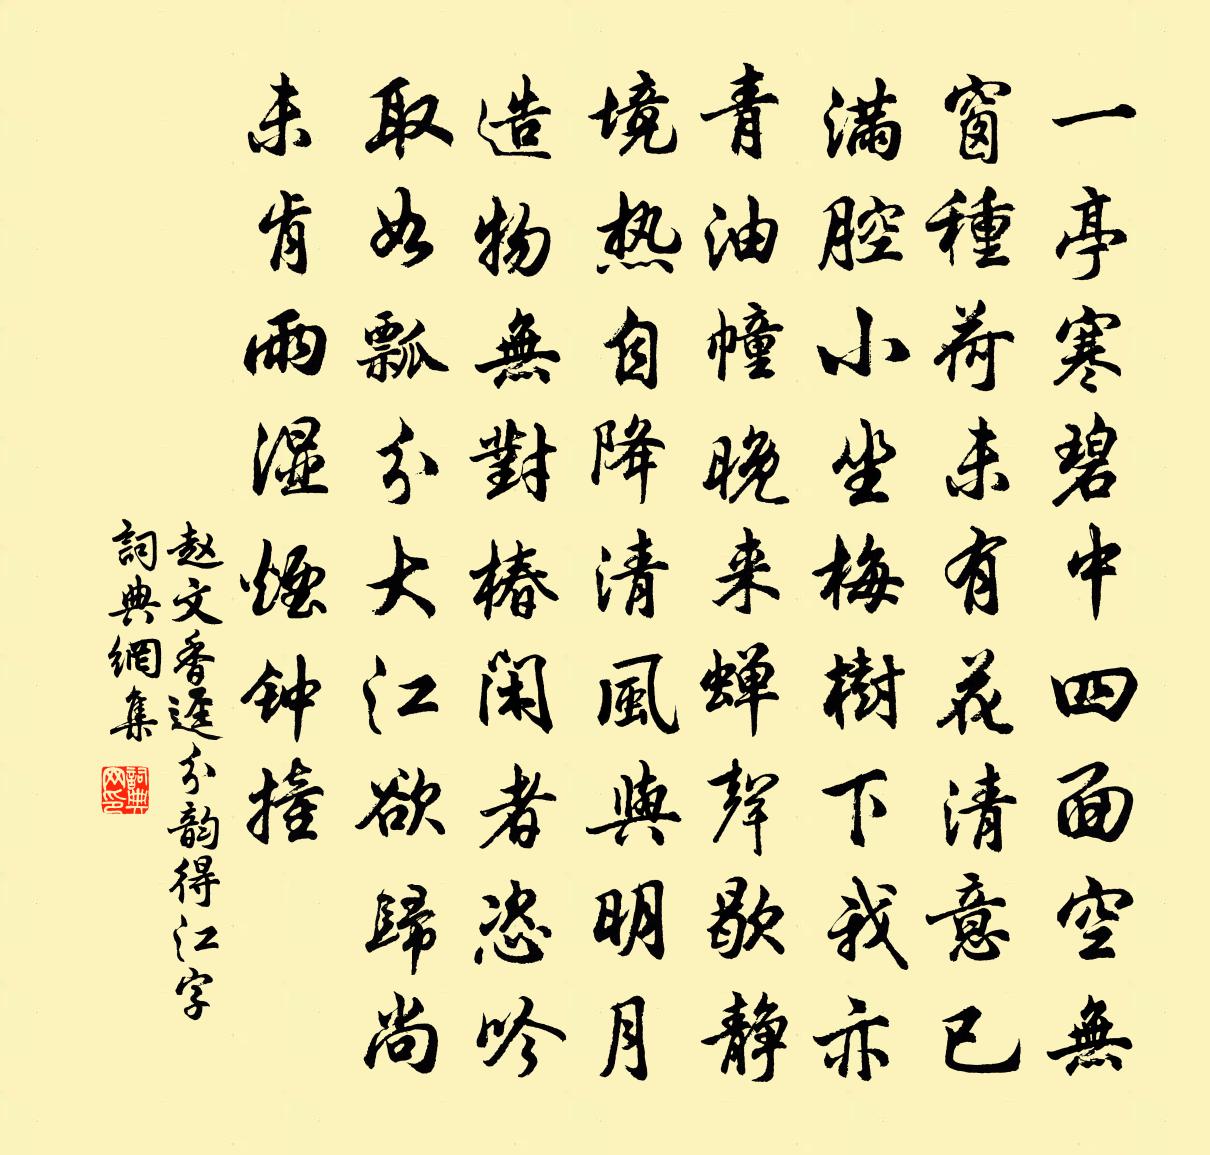 一亭寒碧中四面空無
窗種荷未有花清意已
滿腔小坐梅樹下我亦
青油幢晚来蝉聲歇静
境热自降清風與明月
造物無對樁閑者恣吟
取如瓢分大江欲歸尚
未肯雨湿煙钟撞
赵文香迳分韵得江字
詞典網集
詞典网印